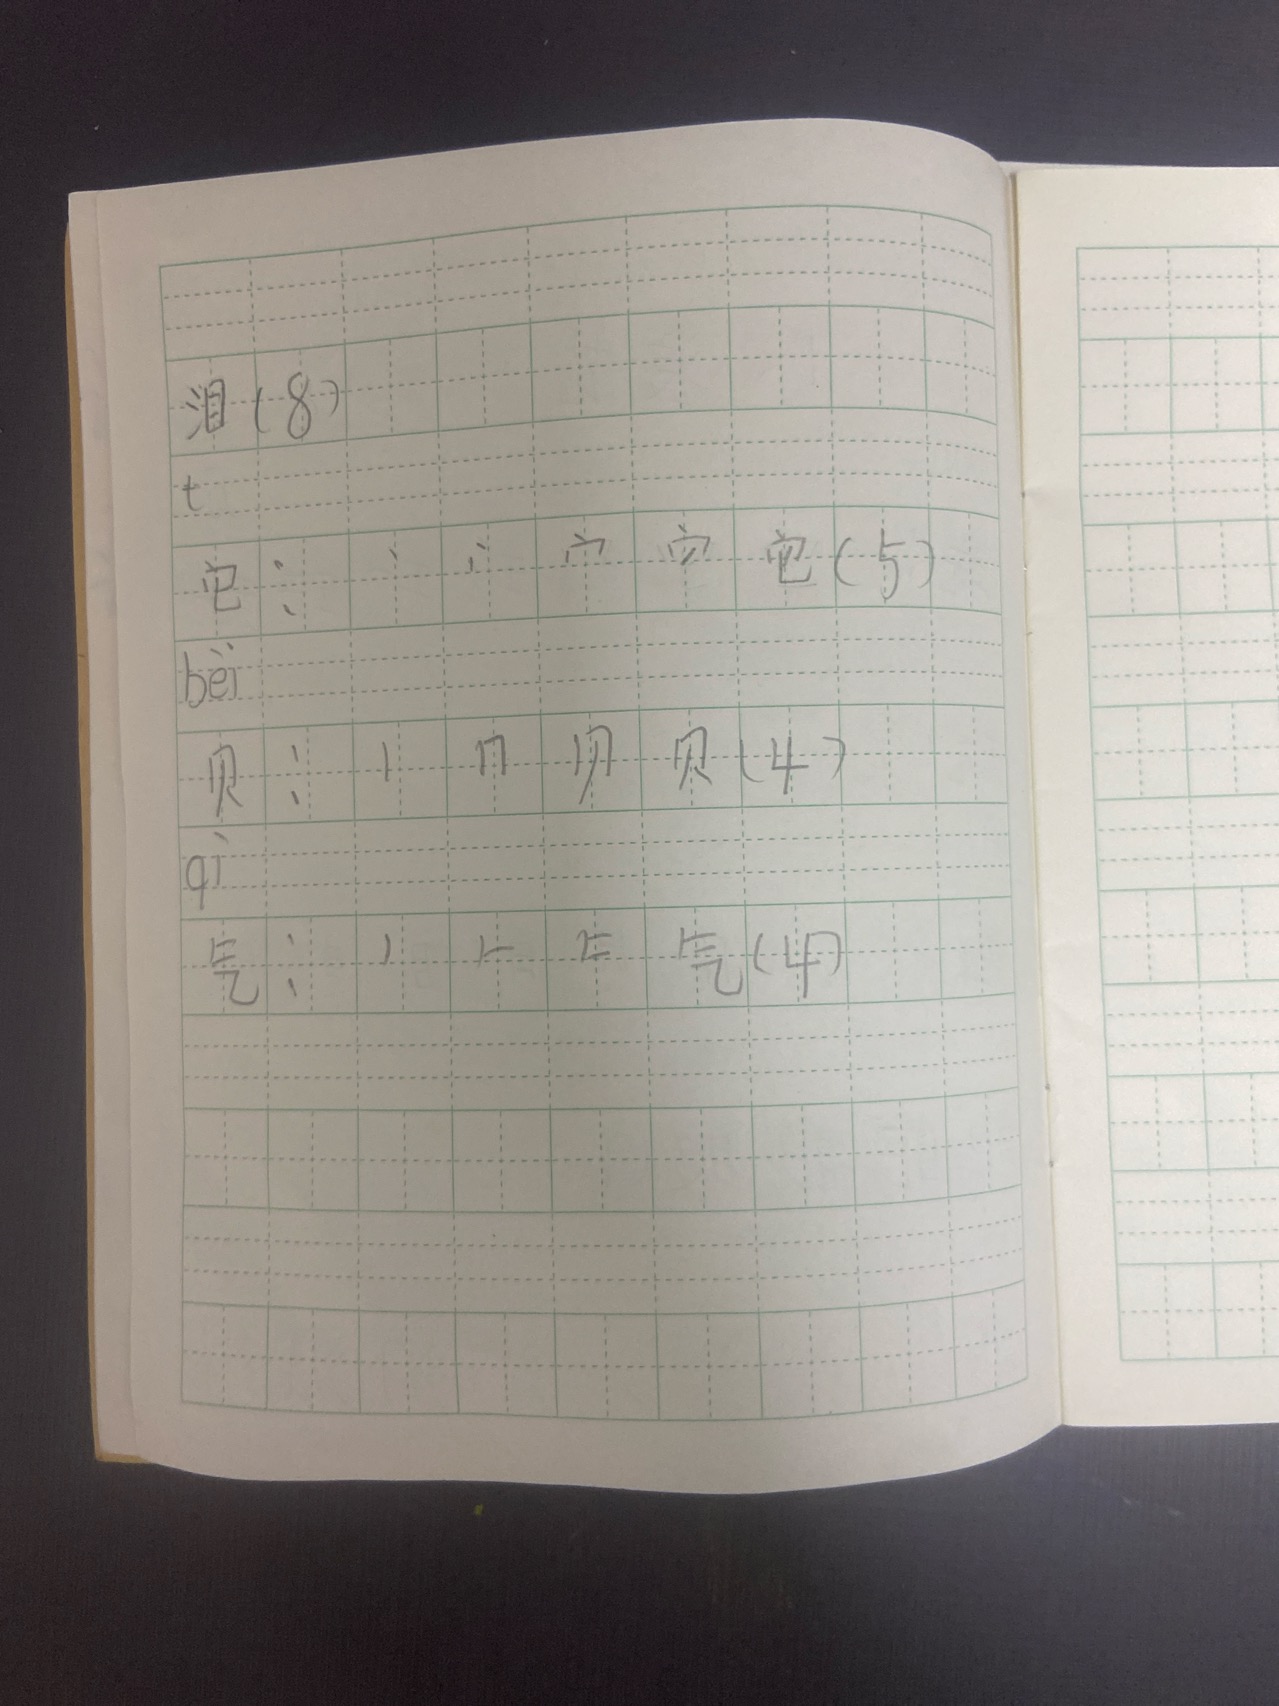 泪(8)
t
它: 丶 丷 宀 它(5)
bèi
贝: 丨 冂 贝 贝(4)
qì
气: 丿 𠂉 气(4)